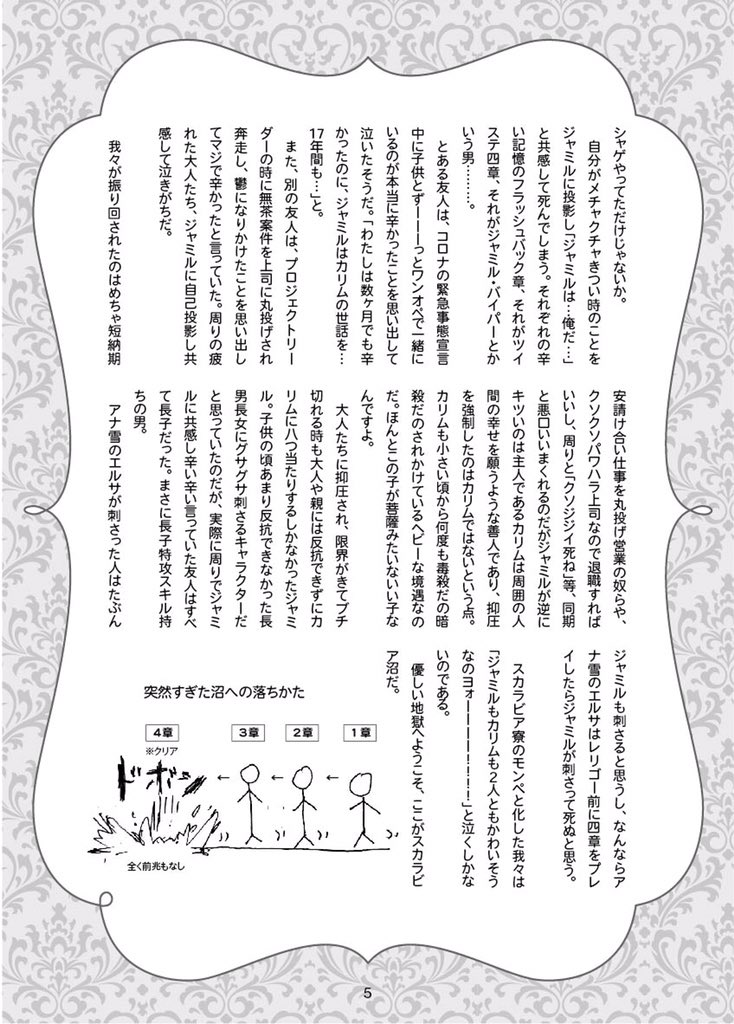 シャゲやってただけじゃないか。
　自分がメチャクチャきつい時のことを
ジャミルに投影し「ジャミルは…俺だ…」
と共感して死んでしまう。それぞれの辛
い記憶のフラッシュバック章、それがツイ
ステ四章、それがジャミル・バイパーとか
いう男………。
　とある友人は、コロナの緊急事態宣言
中に子供とずーーーっとワンオペで一緒に
いるのが本当に辛かったことを思い出して
泣いたそうだ。「わたしは数ヶ月でも辛
かったのに、ジャミルはカリムの世話を…
17年間も…」と。
　また、別の友人は、プロジェクトリー
ダーの時に無茶案件を上司に丸投げされ
奔走し、鬱になりかけたことを思い出し
てマジで辛かったと言っていた。周りの疲
れた大人たち、ジャミルに自己投影し共
感して泣きがちだ。
　我々が振り回されたのはめちゃ短納期
安請け合い仕事を丸投げ営業の奴らや、
クソクソパワハラ上司なので退職すれば
いいし、周りと「クソジジイ死ね」等、同期
と悪口いいまくれるのだがジャミルが逆に
キツいのは主人であるカリムは周囲の人
間の幸せを願うような善人であり、抑圧
を強制したのはカリムではないという点。
カリムも小さい頃から何度も毒殺だの暗
殺だのされかけているヘビーな境遇なの
だ。ほんとこの子が菩薩みたいないい子な
んですよ。
　大人たちに抑圧され、限界がきてブチ
切れる時も大人や親には反抗できずにカ
リムに八つ当たりするしかなかったジャミ
ル。子供の頃あまり反抗できなかった長
男長女にグサグサ刺さるキャラクターだ
と思っていたのだが、実際に周りでジャミ
ルに共感し辛い辛い言っていた友人はすべ
て長子だった。まさに長子特攻スキル持
ちの男。
　アナ雪のエルサが刺さった人はたぶん
ジャミルも刺さると思うし、なんならア
ナ雪のエルサはレリゴー前に四章をプレ
イしたらジャミルが刺さって死ぬと思う。
　スカラビア寮のモンペと化した我々は
「ジャミルもカリムも２人ともかわいそう
なのヨォーーーー！！！！」と泣くしかな
いのである。
　優しい地獄へようこそ、ここがスカラビ
ア沼だ。
突然すぎた沼への落ちかた
1章
←
2章
←
3章
←
4章
※クリア
ドボン
全く前兆もなし
5